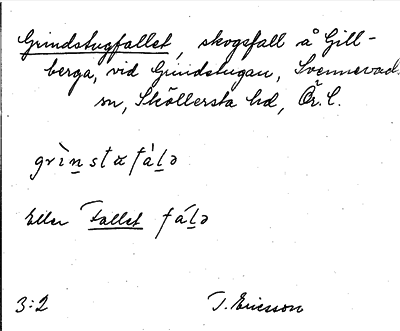 Grindstugfallet, skogsfall å Gill-
berga, vid Grindstugan, Svennevad
sn, Sköllersta hd, Ör. l.
grìn̲stɶfàl̲ə
Eller Fallet fál̲ə
3:2 T. Ericsson